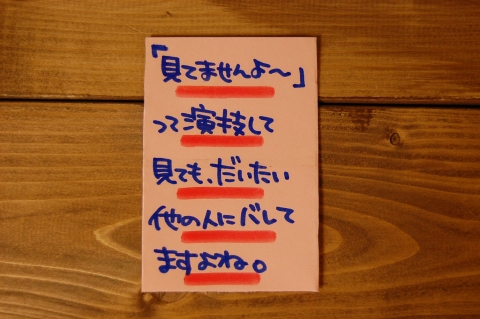 「見てませんよ～」
って演技して
見ても、だいたい
他の人にバレて
ますよね。